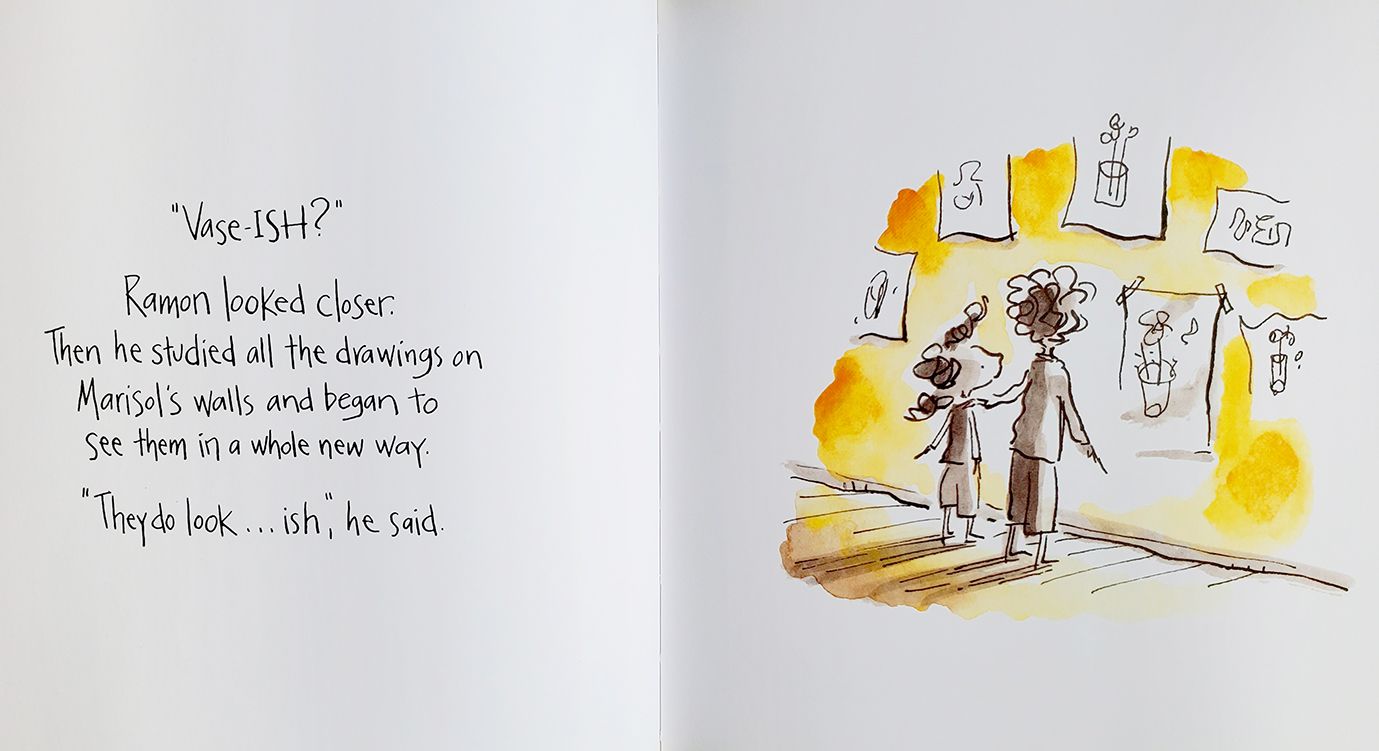 "Vase-ISH?"
Ramon looked closer.
Then he studied all the drawings on
Marisol's walls and began to
see them in a whole new way.
"They do look ... ish," he said.